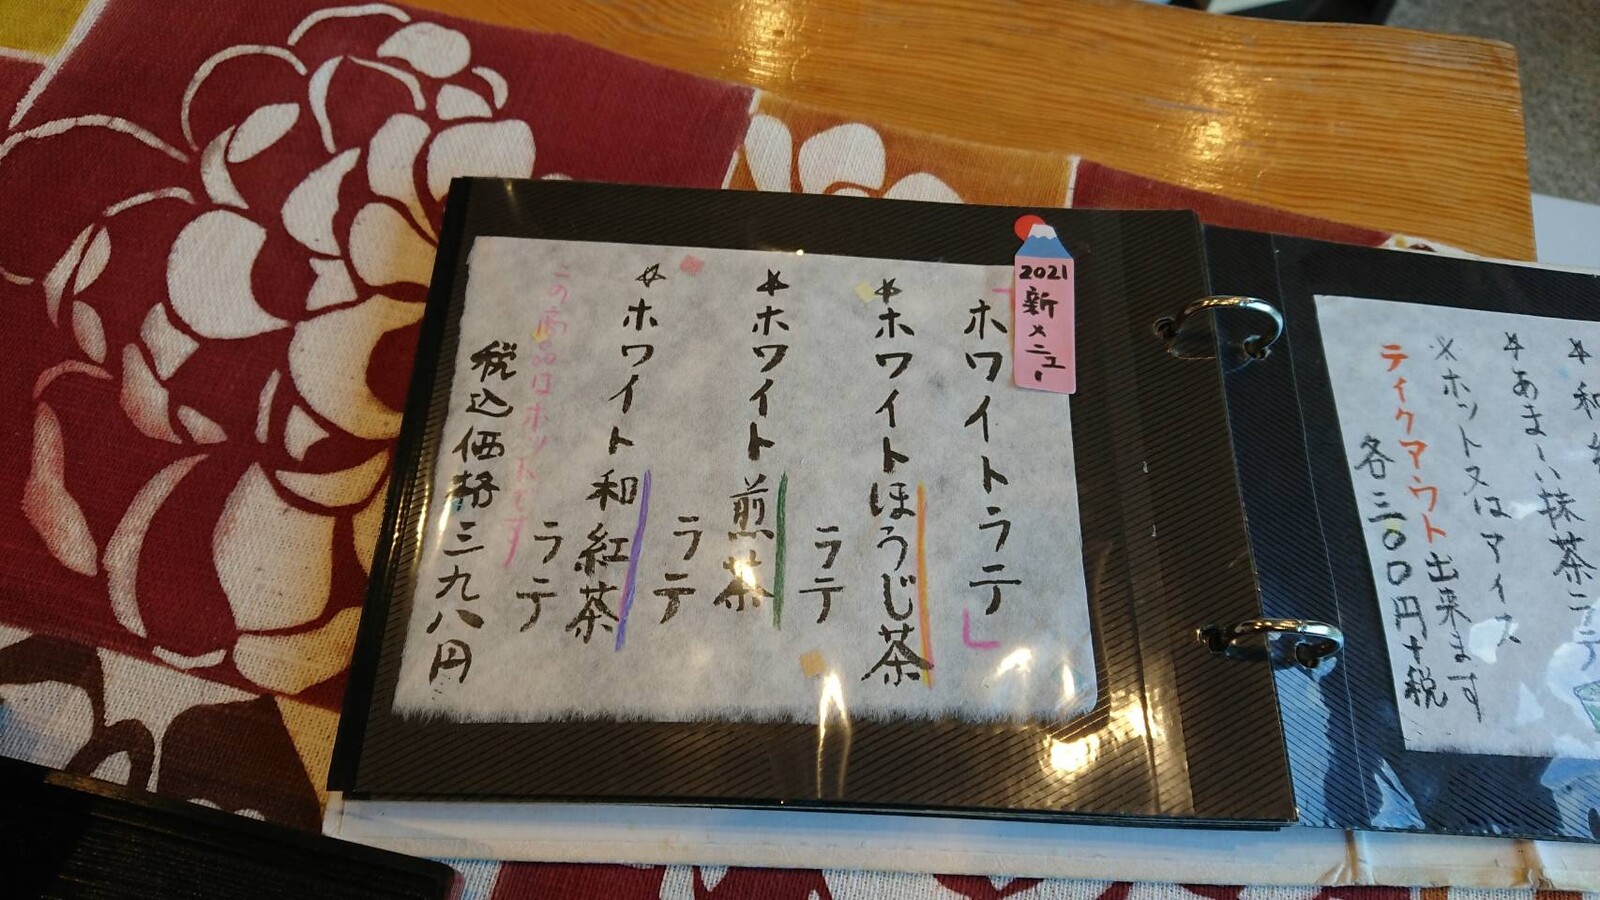 2021
新メニュー
「ホワイトラテ」
*ホワイトほうじ茶
ラテ
*ホワイト煎茶
ラテ
*ホワイト和紅茶
ラテ
この商品はホットです
税込価格三九八円
*あまーい抹茶ラテ
※ホット又はアイス
テイクアウト出来ます
各三〇〇円+税